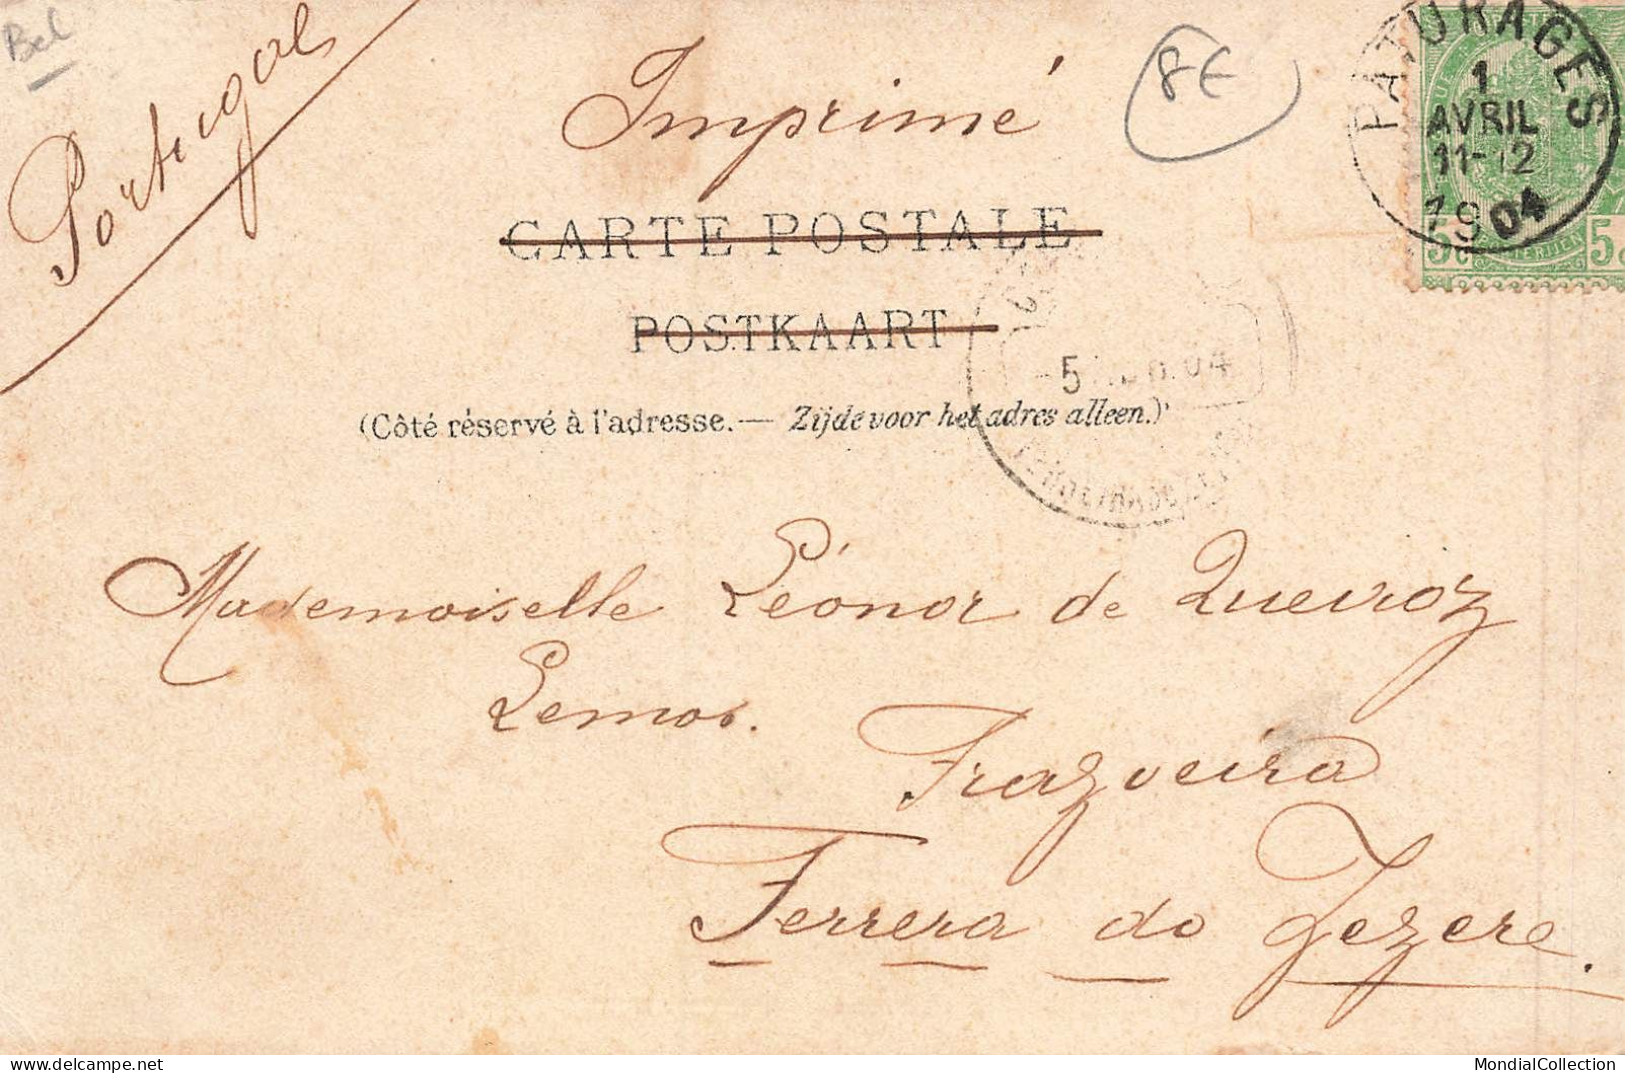 Bel
Portugal
Imprimé
8€
PATURAGES
1
AVRIL
11-12
1904
5c 5c
CARTE POSTALE
POSTKAART
5 04
(Côté réservé à l'adresse.— Zijde voor het adres alleen.)
Mademoiselle Léonor de Queiroz
Lemos.
Frazoeira
Ferrera do Zezere.
delcampe.net
MondialCollection